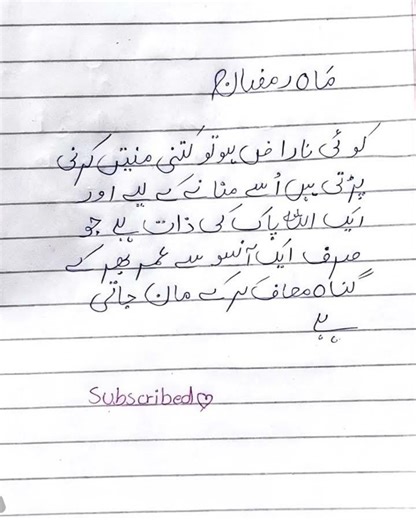 ماہ رمضان
کوئی ناراض ہو تو کتنی منتیں کرنی
پڑتی ہیں اُسے منانے کے لیے اور
ایک اللہ پاک کی ذات ہے جو
صرف ایک آنسو سے عمر بھر کے
گناہ معاف کر کے مان جاتی
ہے
Subscribed♡